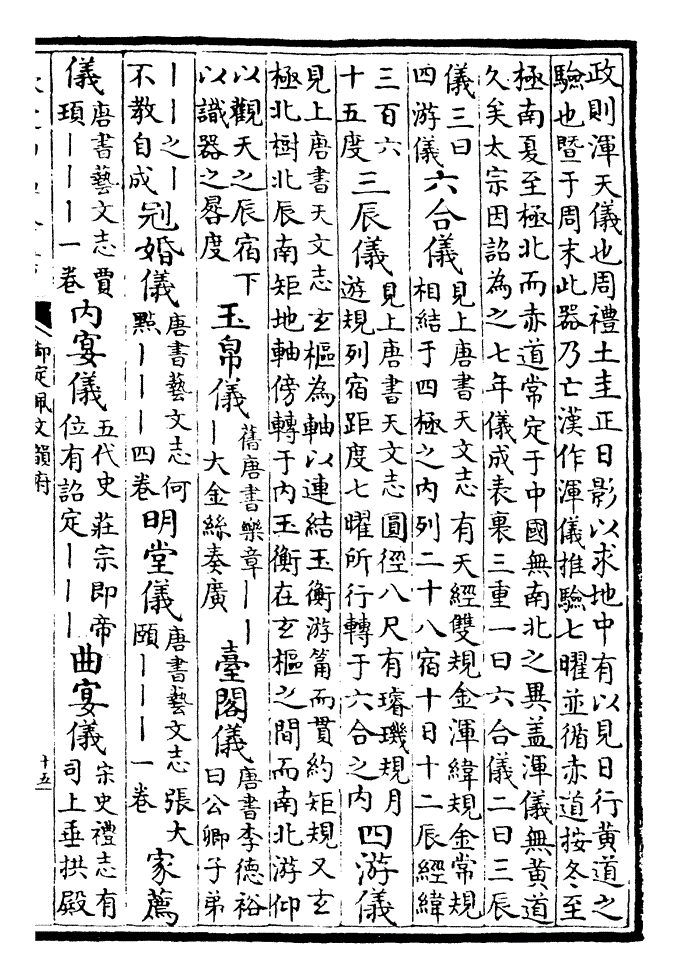 政則渾天儀也周禮土圭正日影以求地中有以見日行黄道之
驗也暨于周末此器乃亡漢作渾儀推驗七曜並循赤道按冬至
極南夏至極北而赤道常定于中國無南北之異盖渾儀無黄道
久矣太宗因詔為之七年儀成表裏三重一曰六合儀二曰三辰
儀三曰
四游儀
六合儀
見上唐書天文志有天經雙規金渾緯規金常規
相結于四極之内列二十八宿十日十二辰經緯
三百六
十五度
三辰儀
見上唐書天文志圓徑八尺有璿璣規月
遊規列宿距度七曜所行轉于六合之内
四游儀
見上唐書天文志玄樞為軸以連結玉衡游筩而貫約矩規又玄
極北樹北辰南矩地軸傍轉于内玉衡在玄樞之間而南北游仰
以觀天之辰宿下
以識器之晷度
玉帛儀
舊唐書樂章——
—大金絲奏廣
臺閣儀
唐書李德裕
曰公卿子弟
——之—
不教自成
冠婚儀
唐書藝文志何
點———四卷
明堂儀
唐書藝文志張大
頤———一卷
家薦
儀
唐書藝文志賈
頊———一卷
内宴儀
五代史莊宗即帝
位有詔定———
曲宴儀
宋史禮志有
司上垂拱殿
御定佩文韻府
十五